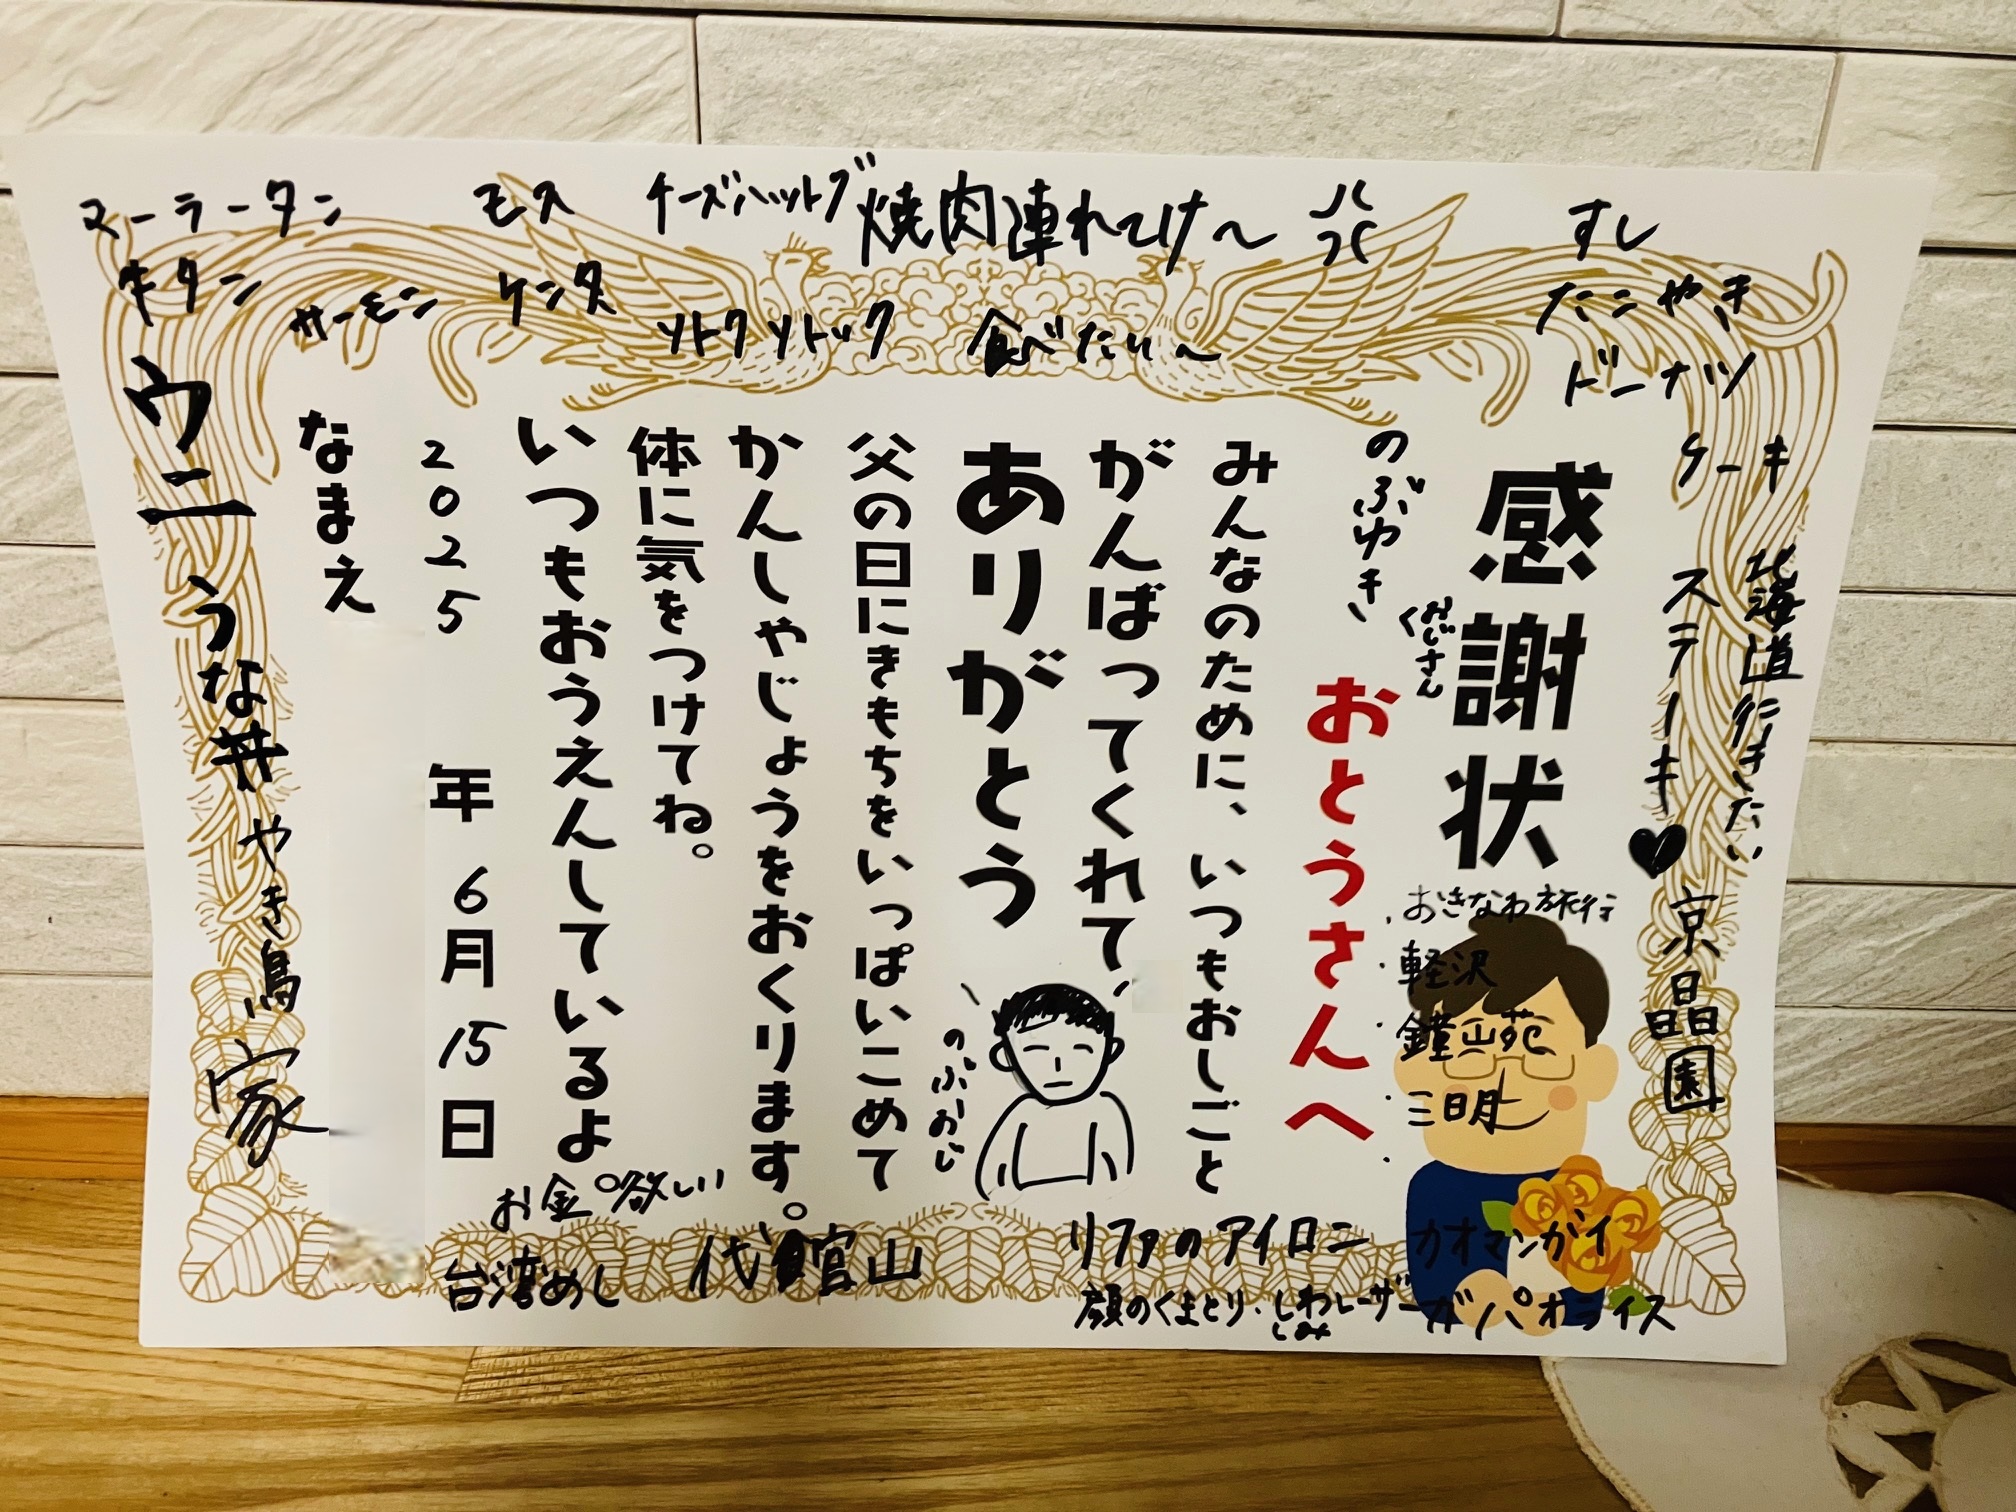 マーラータン
モス
チーズハットグ
焼肉連れてけ〜
すし
牛タン
サーモン
ケンタ
ソトクソトック
食べたい〜
たこやき
ドーナツ
ケーキ
北海道行きたい
ステーキ♥
京晶園
感謝状
のぶゆき
おじさん
く
おとうさんへ
みんなのために、いつもおしごと
がんばってくれて、
ありがとう
父の日にきもちをいっぱいこめて
かんしゃじょうをおくります。
体に気をつけてね。
いつもおうえんしているよ
2025年6月15日
なまえ
ウニ うな丼 やき鳥 家
・おきなわ旅行
・軽沢
・鐘山苑
・三日月
のぶおじ
お金欲しい
台湾めし
代官山
リファのアイロン
カオマンガイ
顔のくまとり・しわレーザー
しみ
ガパオライス